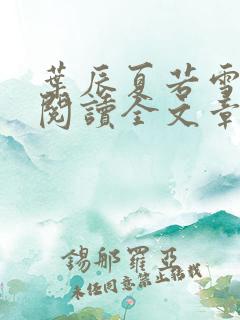 葉辰夏若雪
閱讀全文章
錫那羅亞
未任同意禁止轉載